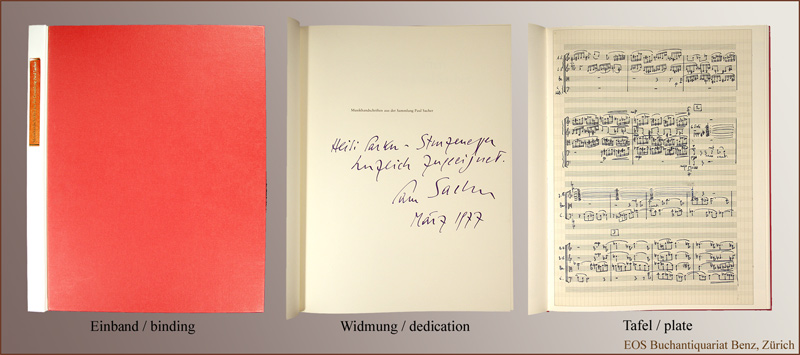 Musikhandschriften aus der Sammlung Paul Sacher
herzlich zugeeignet.
Paul Sacher
März 1977
Einband / binding
Widmung / dedication
Tafel / plate
EOS Buchantiquariat Benz, Zürich